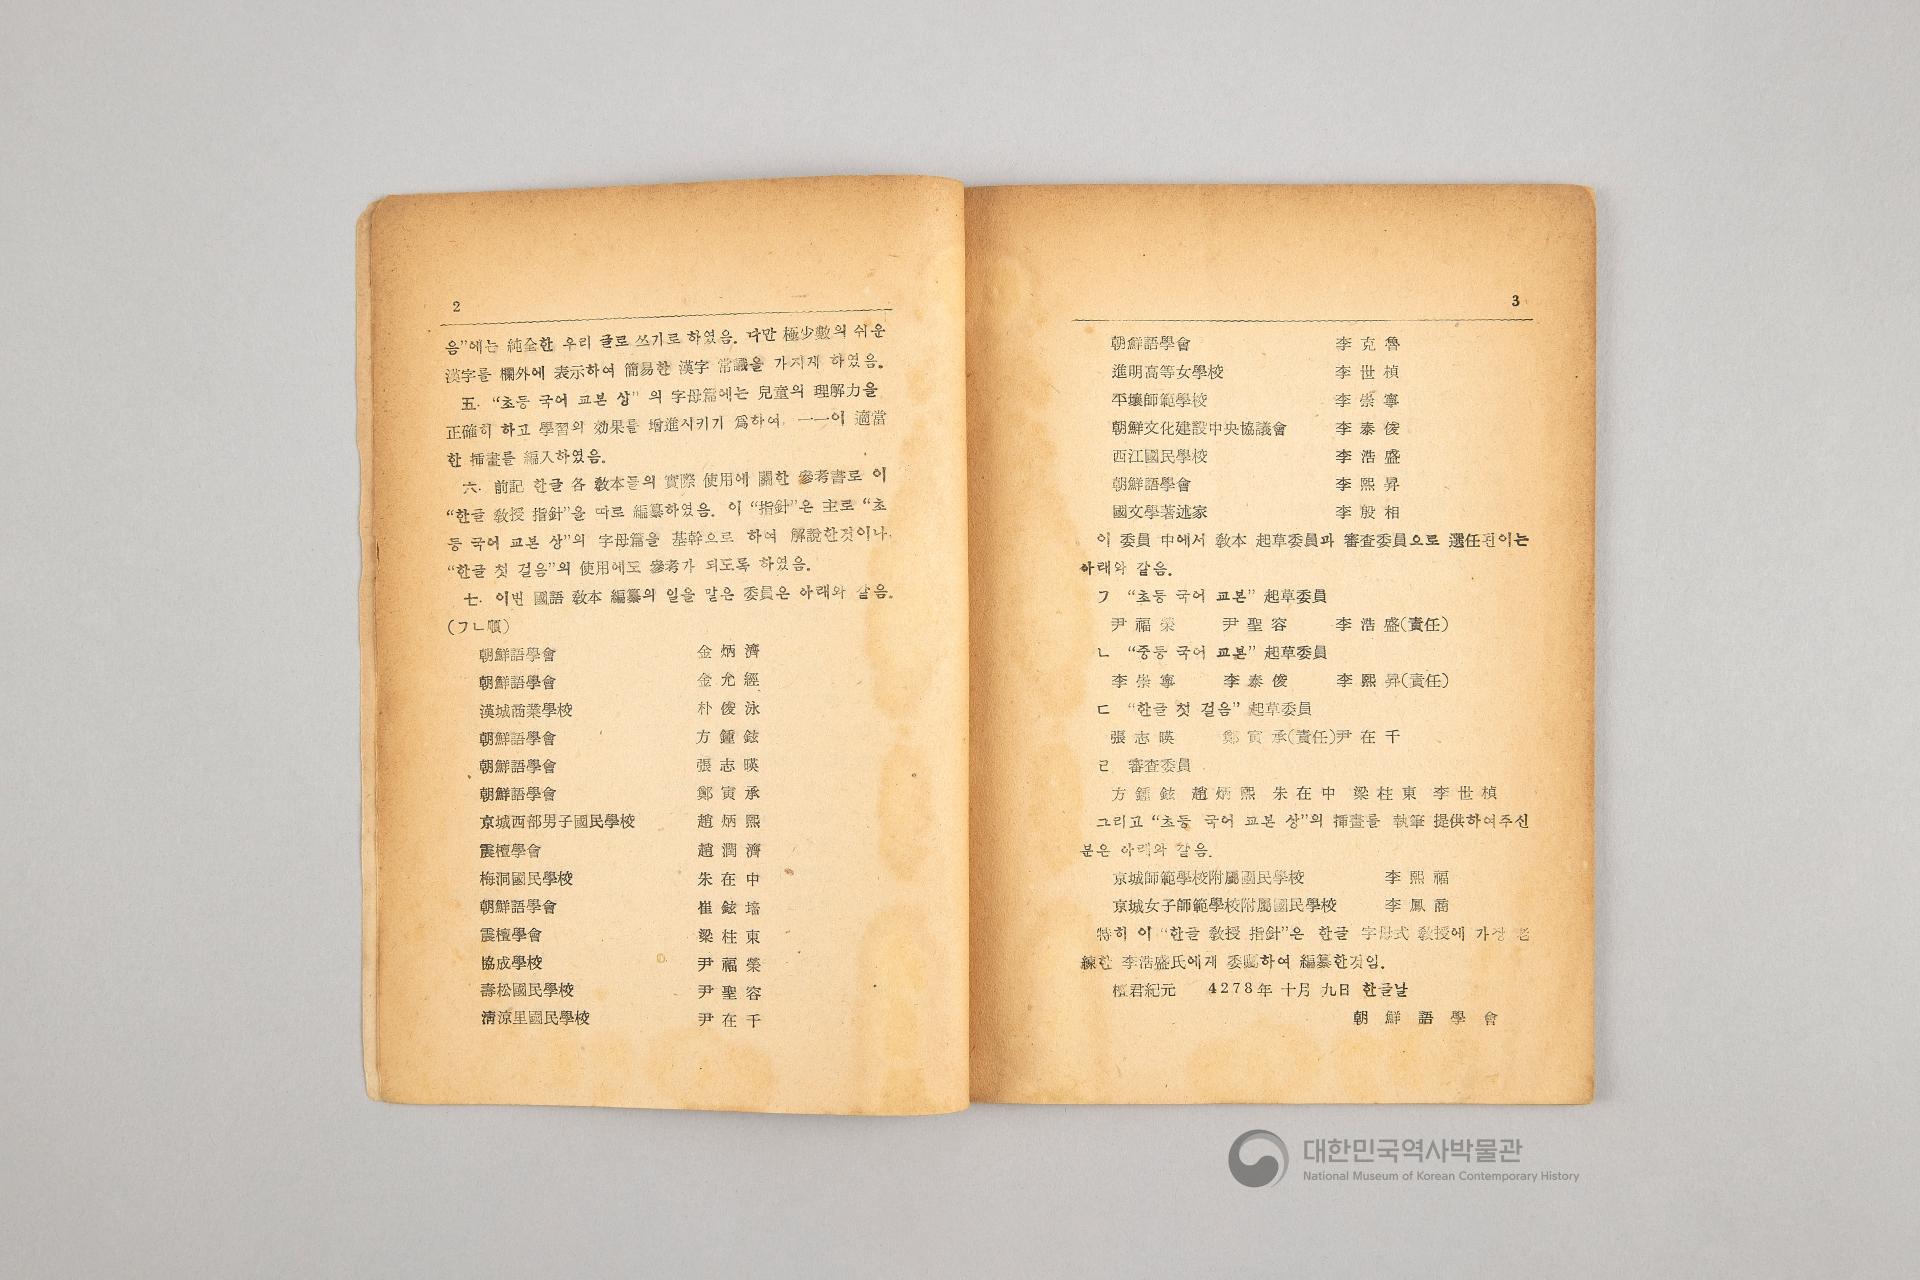 2
음”에는 純全한 우리 글로 쓰기로 하였음. 다만 極少數의 쉬운
漢字를 欄外에 表示하여 簡易한 漢字 常識을 가지게 하였음.
五. “초등 국어 교본 상” 의 字母篇에는 兒童의 理解力을
正確히 하고 學習의 効果를 增進시키기 爲하여, 一一이 適當
한 揷畫를 編入하였음.
六. 前記 한글 各 敎本들의 實際 使用에 關한 參考書로 이
“한글 敎授 指針”을 따로 編纂하였음. 이 “指針”은 主로 “초
등 국어 교본 상”의 字母篇을 基幹으로 하여 解說한것이나,
“한글 첫 걸음”의 使用에도 參考가 되도록 하였음.
七. 이번 國語 敎本 編纂의 일을 맡은 委員은 아래와 같음.
(ㄱㄴ順)
朝鮮語學會 金炳濟
朝鮮語學會 金允經
漢城商業學校 朴俊泳
朝鮮語學會 方鍾鉉
朝鮮語學會 張志暎
朝鮮語學會 鄭寅承
京城西部男子國民學校 趙炳熙
震檀學會 趙潤濟
梅洞國民學校 朱在中
朝鮮語學會 崔鉉培
震檀學會 梁柱東
協成學校 尹福榮
壽松國民學校 尹聖容
淸凉里國民學校 尹在千
3
朝鮮語學會 李克魯
進明高等女學校 李世楨
平壤師範學校 李崇寧
朝鮮文化建設中央協議會 李泰俊
西江國民學校 李浩盛
朝鮮語學會 李熙昇
國文學著述家 李殷相
이 委員 中에서 敎本 起草委員과 審査委員으로 選任된이는
아래와 같음.
ㄱ “초등 국어 교본” 起草委員
尹福榮 尹聖容 李浩盛(責任)
ㄴ “중등 국어 교본” 起草委員
李崇寧 李泰俊 李熙昇(責任)
ㄷ “한글 첫 걸음” 起草委員
張志暎 鄭寅承(責任)尹在千
ㄹ 審査委員
方鍾鉉 趙炳熙 朱在中 梁柱東 李世楨
그리고 “초등 국어 교본 상”의 揷畫를 執筆 提供하여주신
분은 아래와 같음.
京城師範學校附屬國民學校 李熙福
京城女子師範學校附屬國民學校 李鳳商
特히 이 “한글 敎授 指針”은 한글 字母式 敎授에 가장 老
練한 李浩盛氏에게 委囑하여 編纂한것임.
檀君紀元 4278年 十月 九日 한글날
朝鮮語學會
대한민국역사박물관
National Museum of Korean Contemporary History